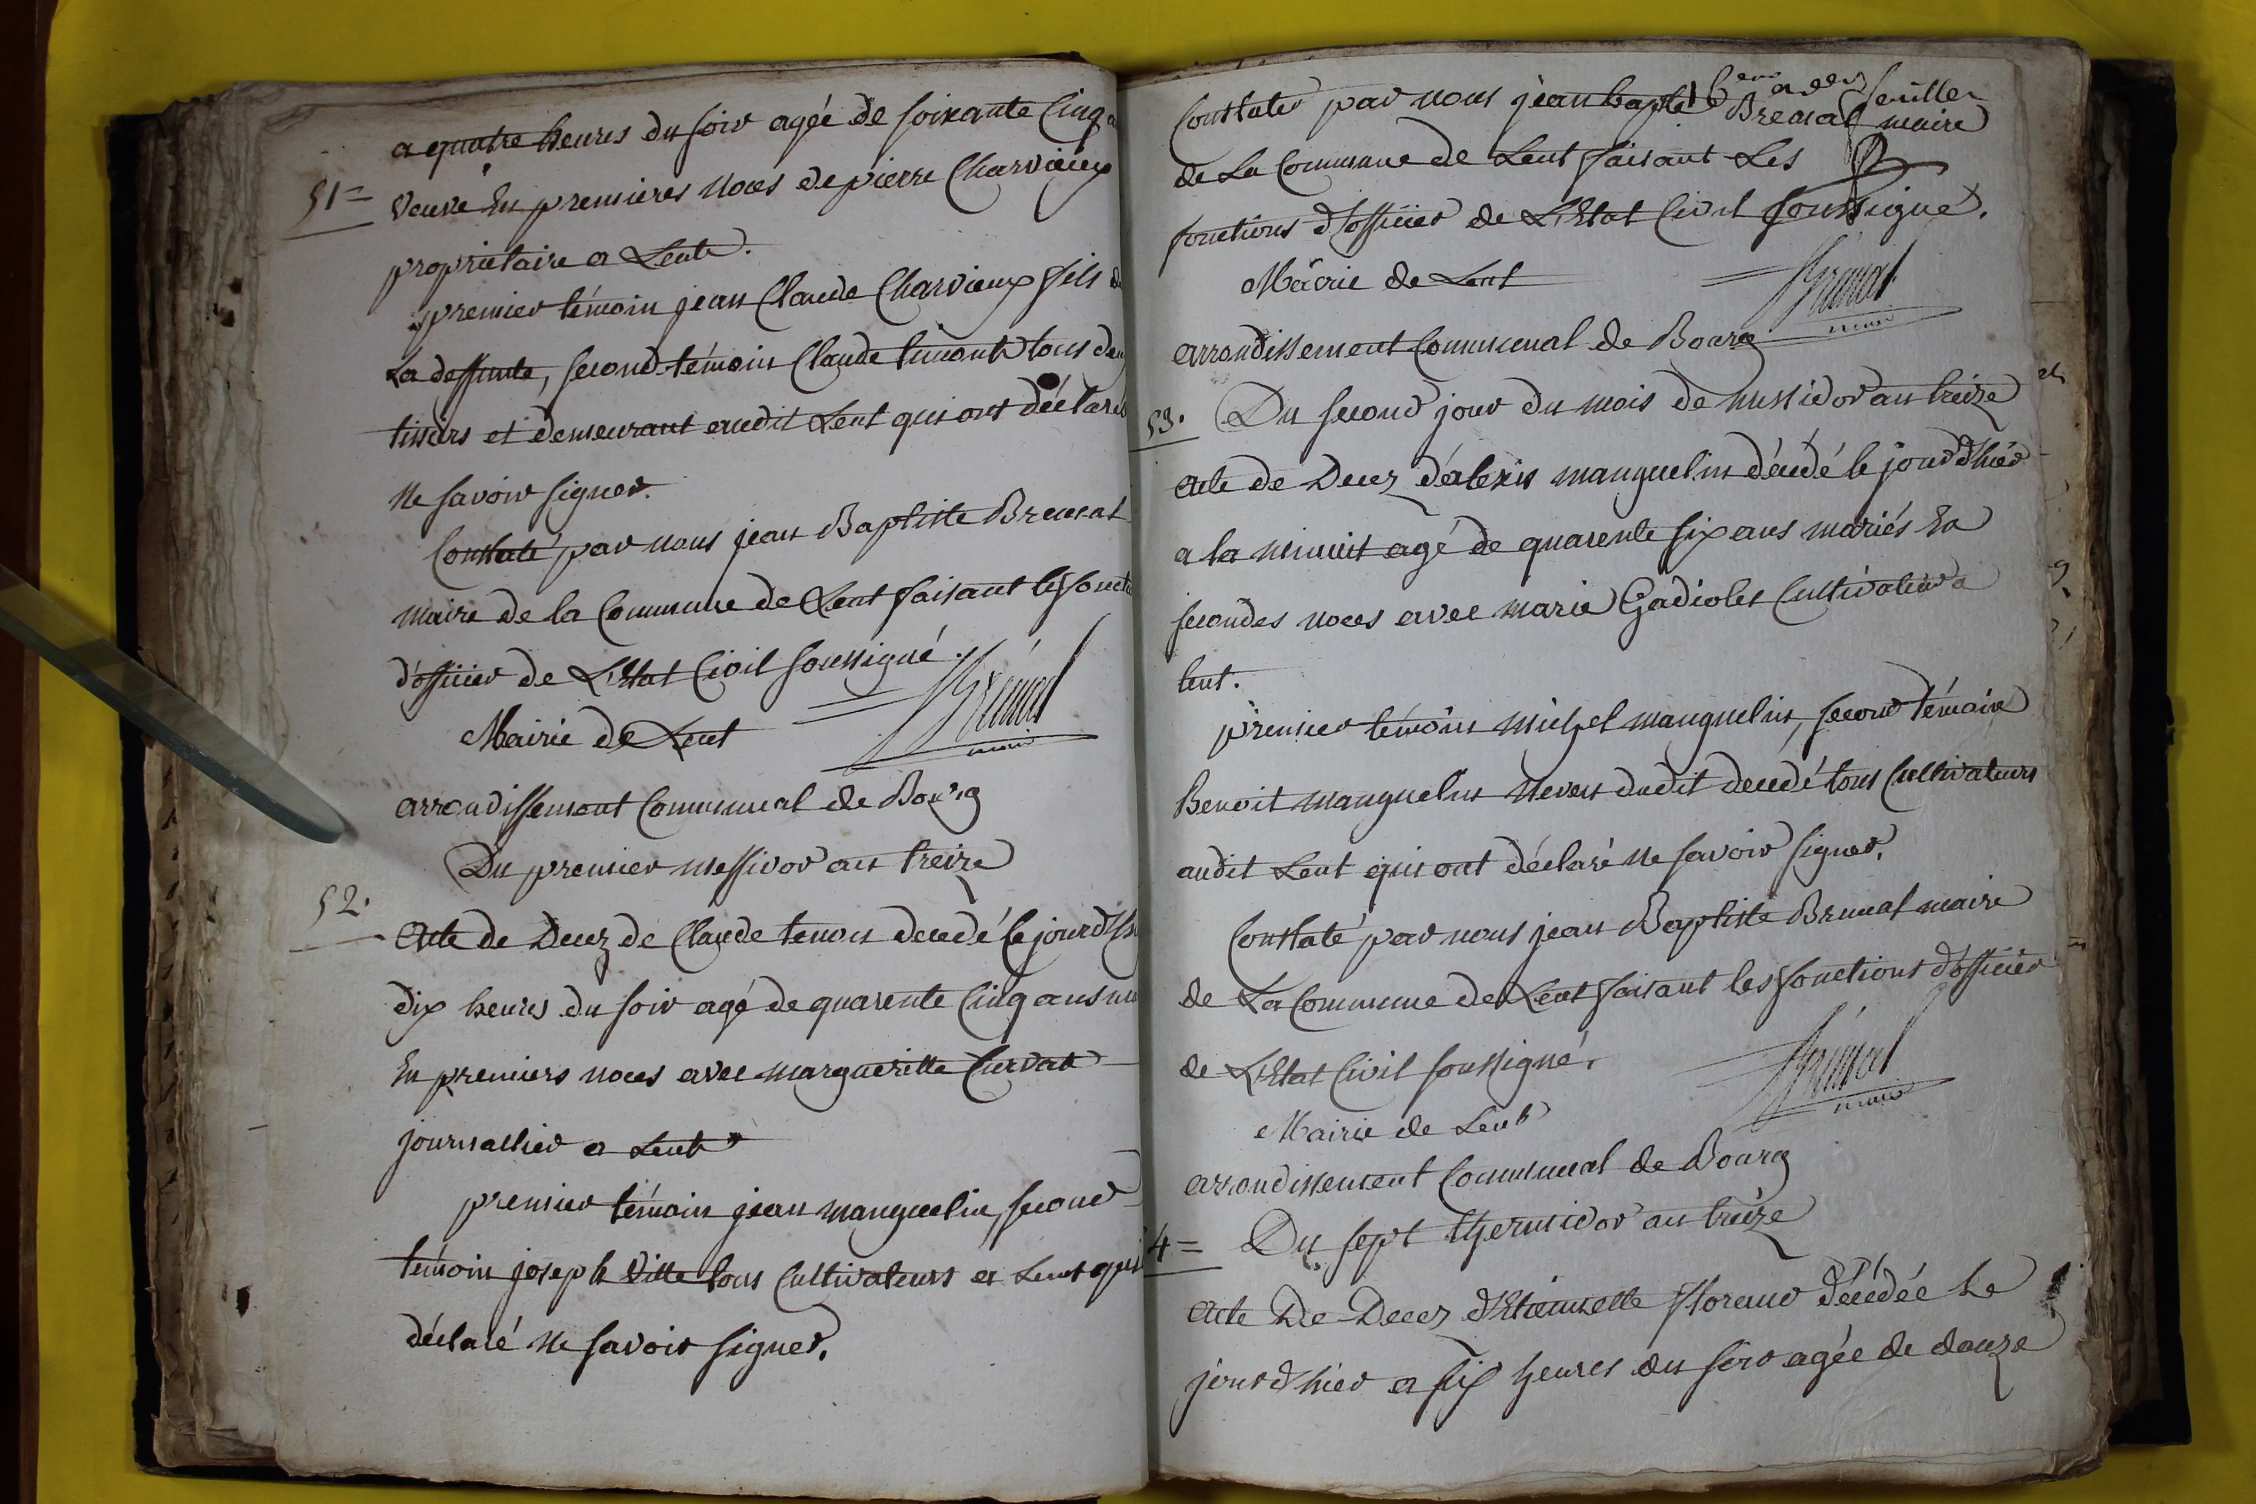 a quatre heures du soir agée de soixante Cinq
51=
veuve En premieres noces de pierre Charvieux
proprietaire a Lent.
premier témoin jean Claude Charvieux fils de
La deffunte, second témoin Claude timont tous deux
tissiers et demeurant audit Lent qui ont déclaré
Ne savoir signer.
Constaté par nous jean Baptiste Brunat
maire de la Commune de Lent faisant les fonct
d'officier de L'Etat Civil soussigné.
Brunat
maire
Mairie de Lent
arrondissement Communal de Bourg
Du premier messidor an treize
52.
Acte de Decez de Claude tenon decedé le jour d'h
dix heures du soir agé de quarente Cinq ans m
En premiers noces avec margueritte Curvat
journallier a Lent
premier témoin jean manguelin, second
témoin joseph Vitte tous Cultivateurs a Lent qui
déclaré ne savoir signer.
16 feuillet
Constaté par nous jean baptiste Brunat maire
de La Commune de Lent faisant Les
fonctions d'officier de L'Etat Civil soussigné.
Brunat
maire
Mairie de Lent
arrondissement Communal de Bourg
53.
Du second jour du mois de messidor an treize
Acte de Decez d'alexis manguelin décédé le jour d'hier
a la minuit agé de quarente six ans mariés En
secondes noces avec marie Gadiolet Cultivateur a
lent.
premier témoin michel manguelin, second témoin
Benoit manguelin Neveu dudit decedé tous Cultivateurs
audit Lent qui ont déclaré ne savoir signer.
Constaté par nous jean Baptiste Brunat maire
de La Commune de Lent faisant les fonctions d'officier
de L'Etat Civil soussigné.
Brunat
maire
Mairie de Lent
arrondissement Communal de Bourg
4=
Du sept thermidor an treize
Acte De Decez d'Etiennette Morand décédée Le
jour d'hier a six heures du soir agée de douze